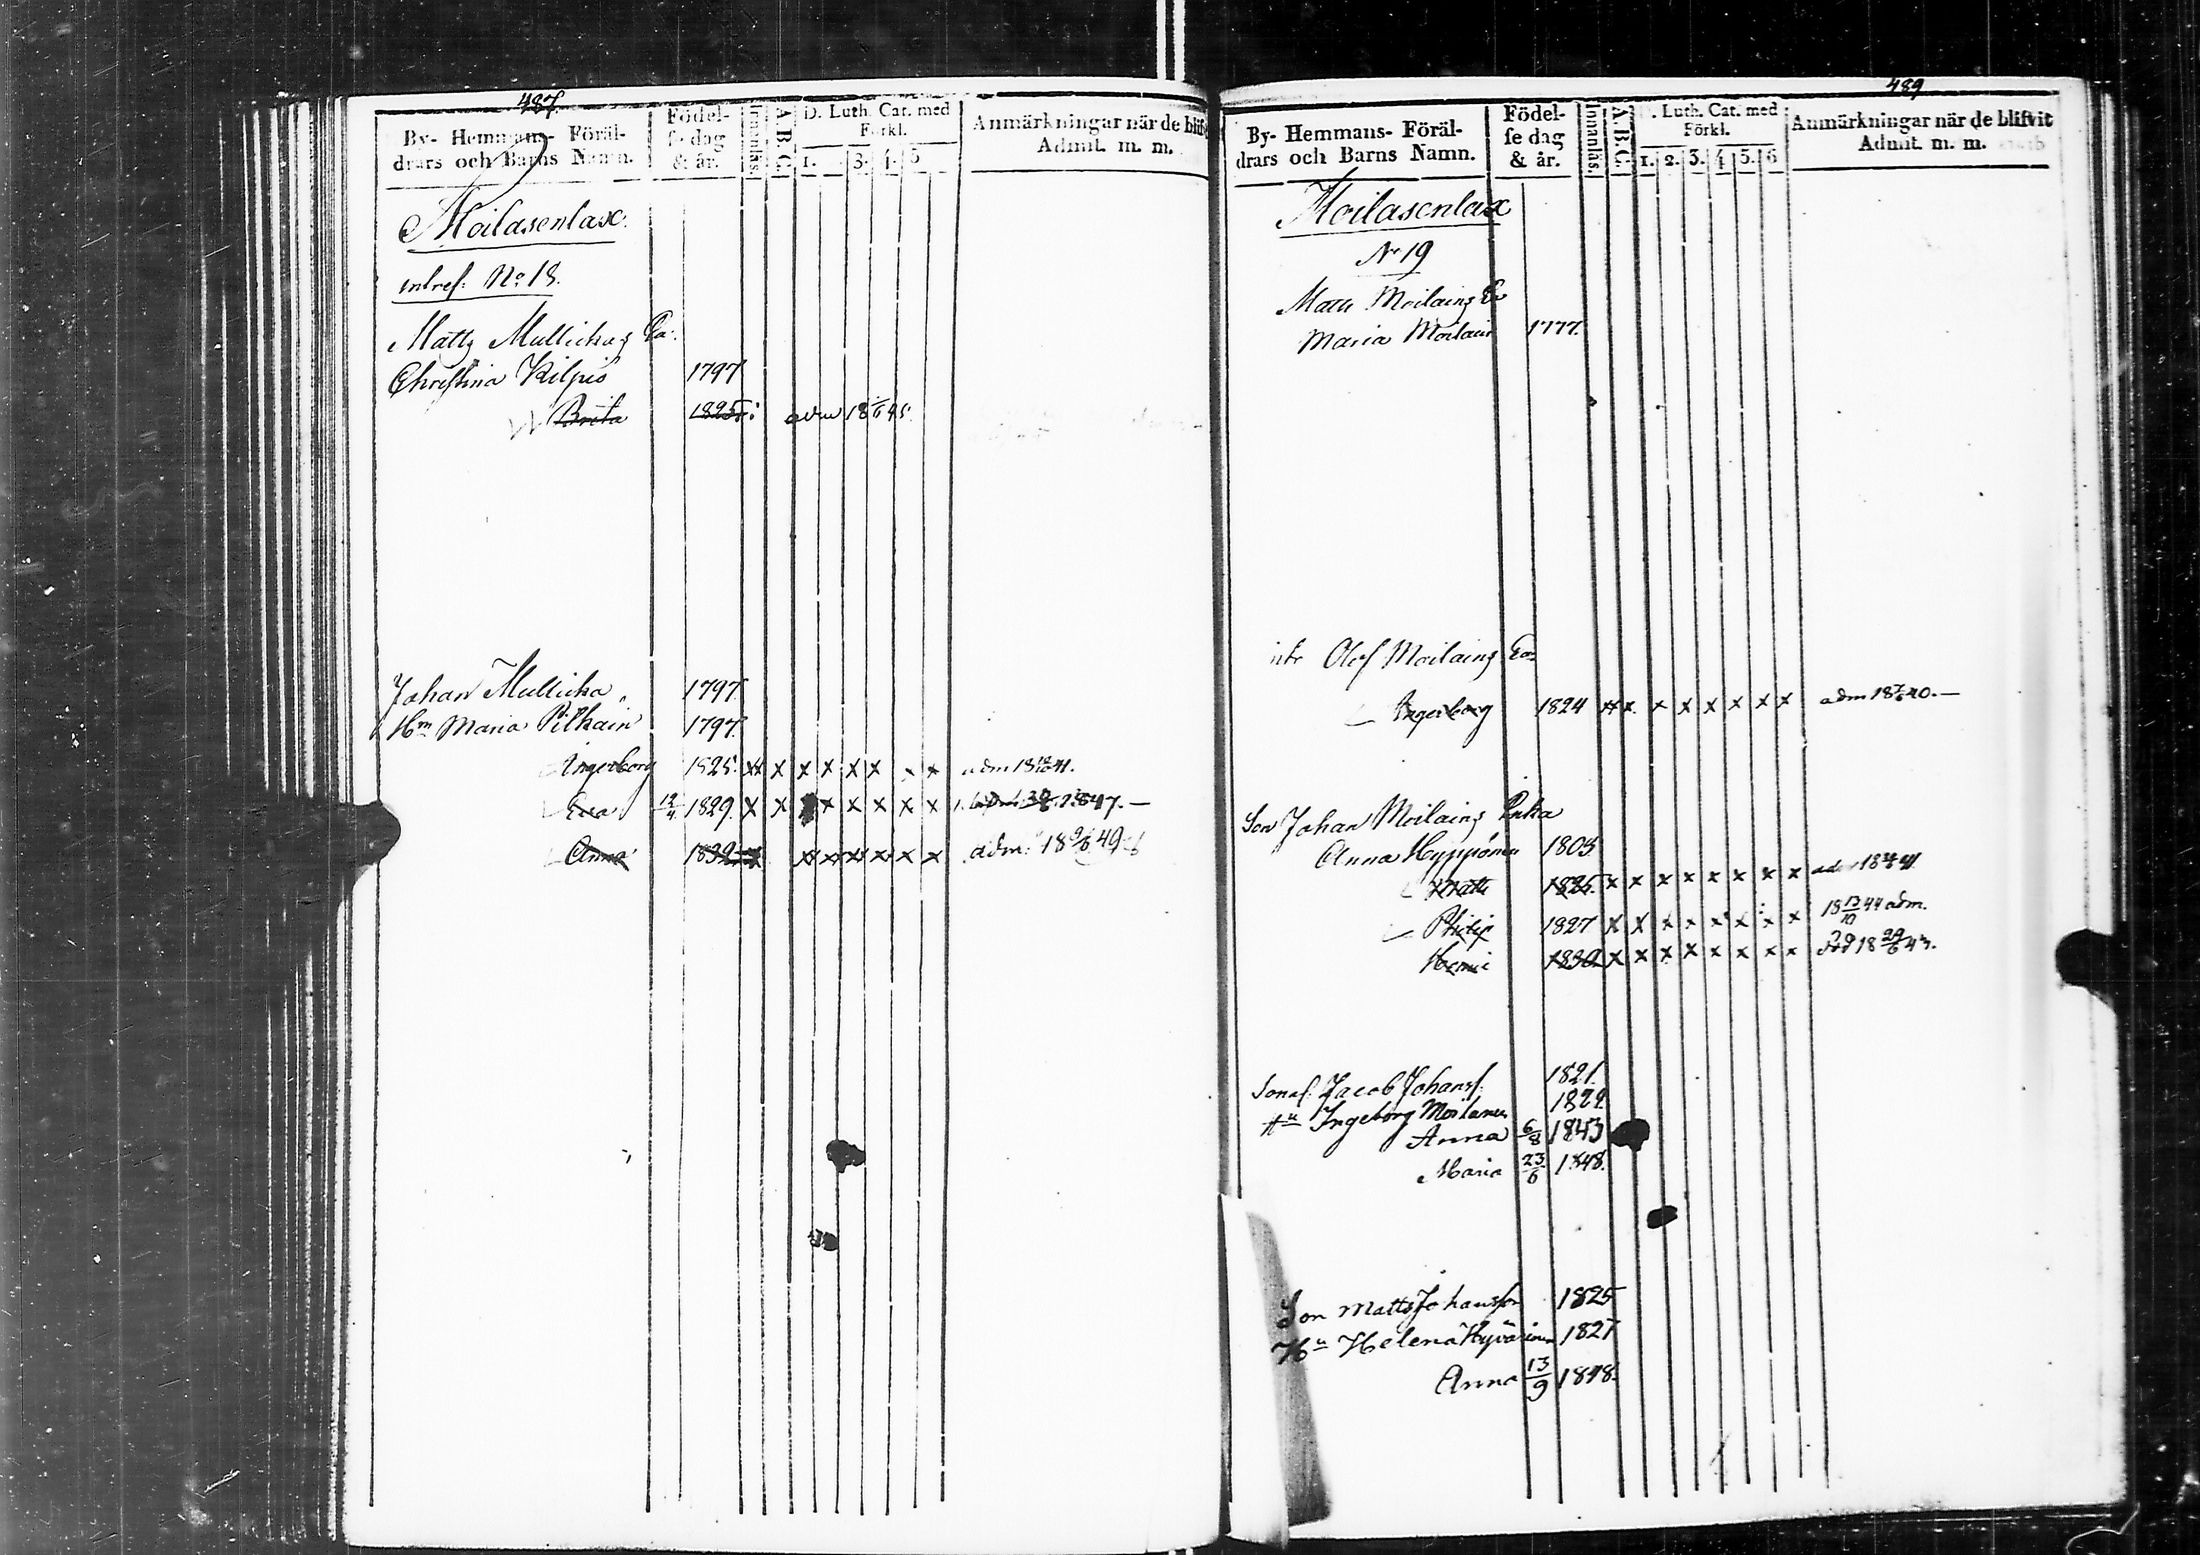 487.
By- Hemmans- Föräl-
drars och Barns Namn.
Födel-
se dag
& år.
Innanläs.
A. B. C.
D. Luth. Cat. med
Förkl.
1. 3. 4. 5
Anmärkningar när de blifv
Admit. m. m.
Moilasenlax.
No 18.
Matts Mullickas Ea.
Christina Kilpiö 1797
Brita 1825. adm 18 45.
Johan Mullicka 1797
Hu Maria Pitkäin 1797.
Ingerborg 1825. x x x x x x x x adm 18 41.
Eva 1829. x x x x x x x 1847. —
Anna 1832 x x x x x x x adm. 18 9/6 49
489
By- Hemmans- Föräl-
drars och Barns Namn.
Födel-
se dag
& år.
Innanläs.
A. B. C.
D. Luth. Cat. med
Förkl.
1. 2. 3. 4 5. 6
Anmärkningar när de blifvit
Admit. m. m.
Moilasenlax
No 19
Matts Moilains Ea
Maria Moilain 1777.
Olof Moilains Ea
Ingerborg 1824 x x x x x x x x adm 18 40. —
Son Johan Moilains Enka
Anna Hyppönen 1803
Matts 1825. x x x x x x x x adm 18 41
Philip 1827 x x x x x x x x 18 13/10 44 adm.
Henric 1830 x x x x x x x x död 18 29/6 43.
Jacob Johanss. 1821.
Hu Ingeborg Moilanen 1822
Anna 6/8 1843
Maria 23/6 1848.
Son Matts Johansson 1825
Hu Helena Hyvärinen 1827
Anna 13/9 1848.